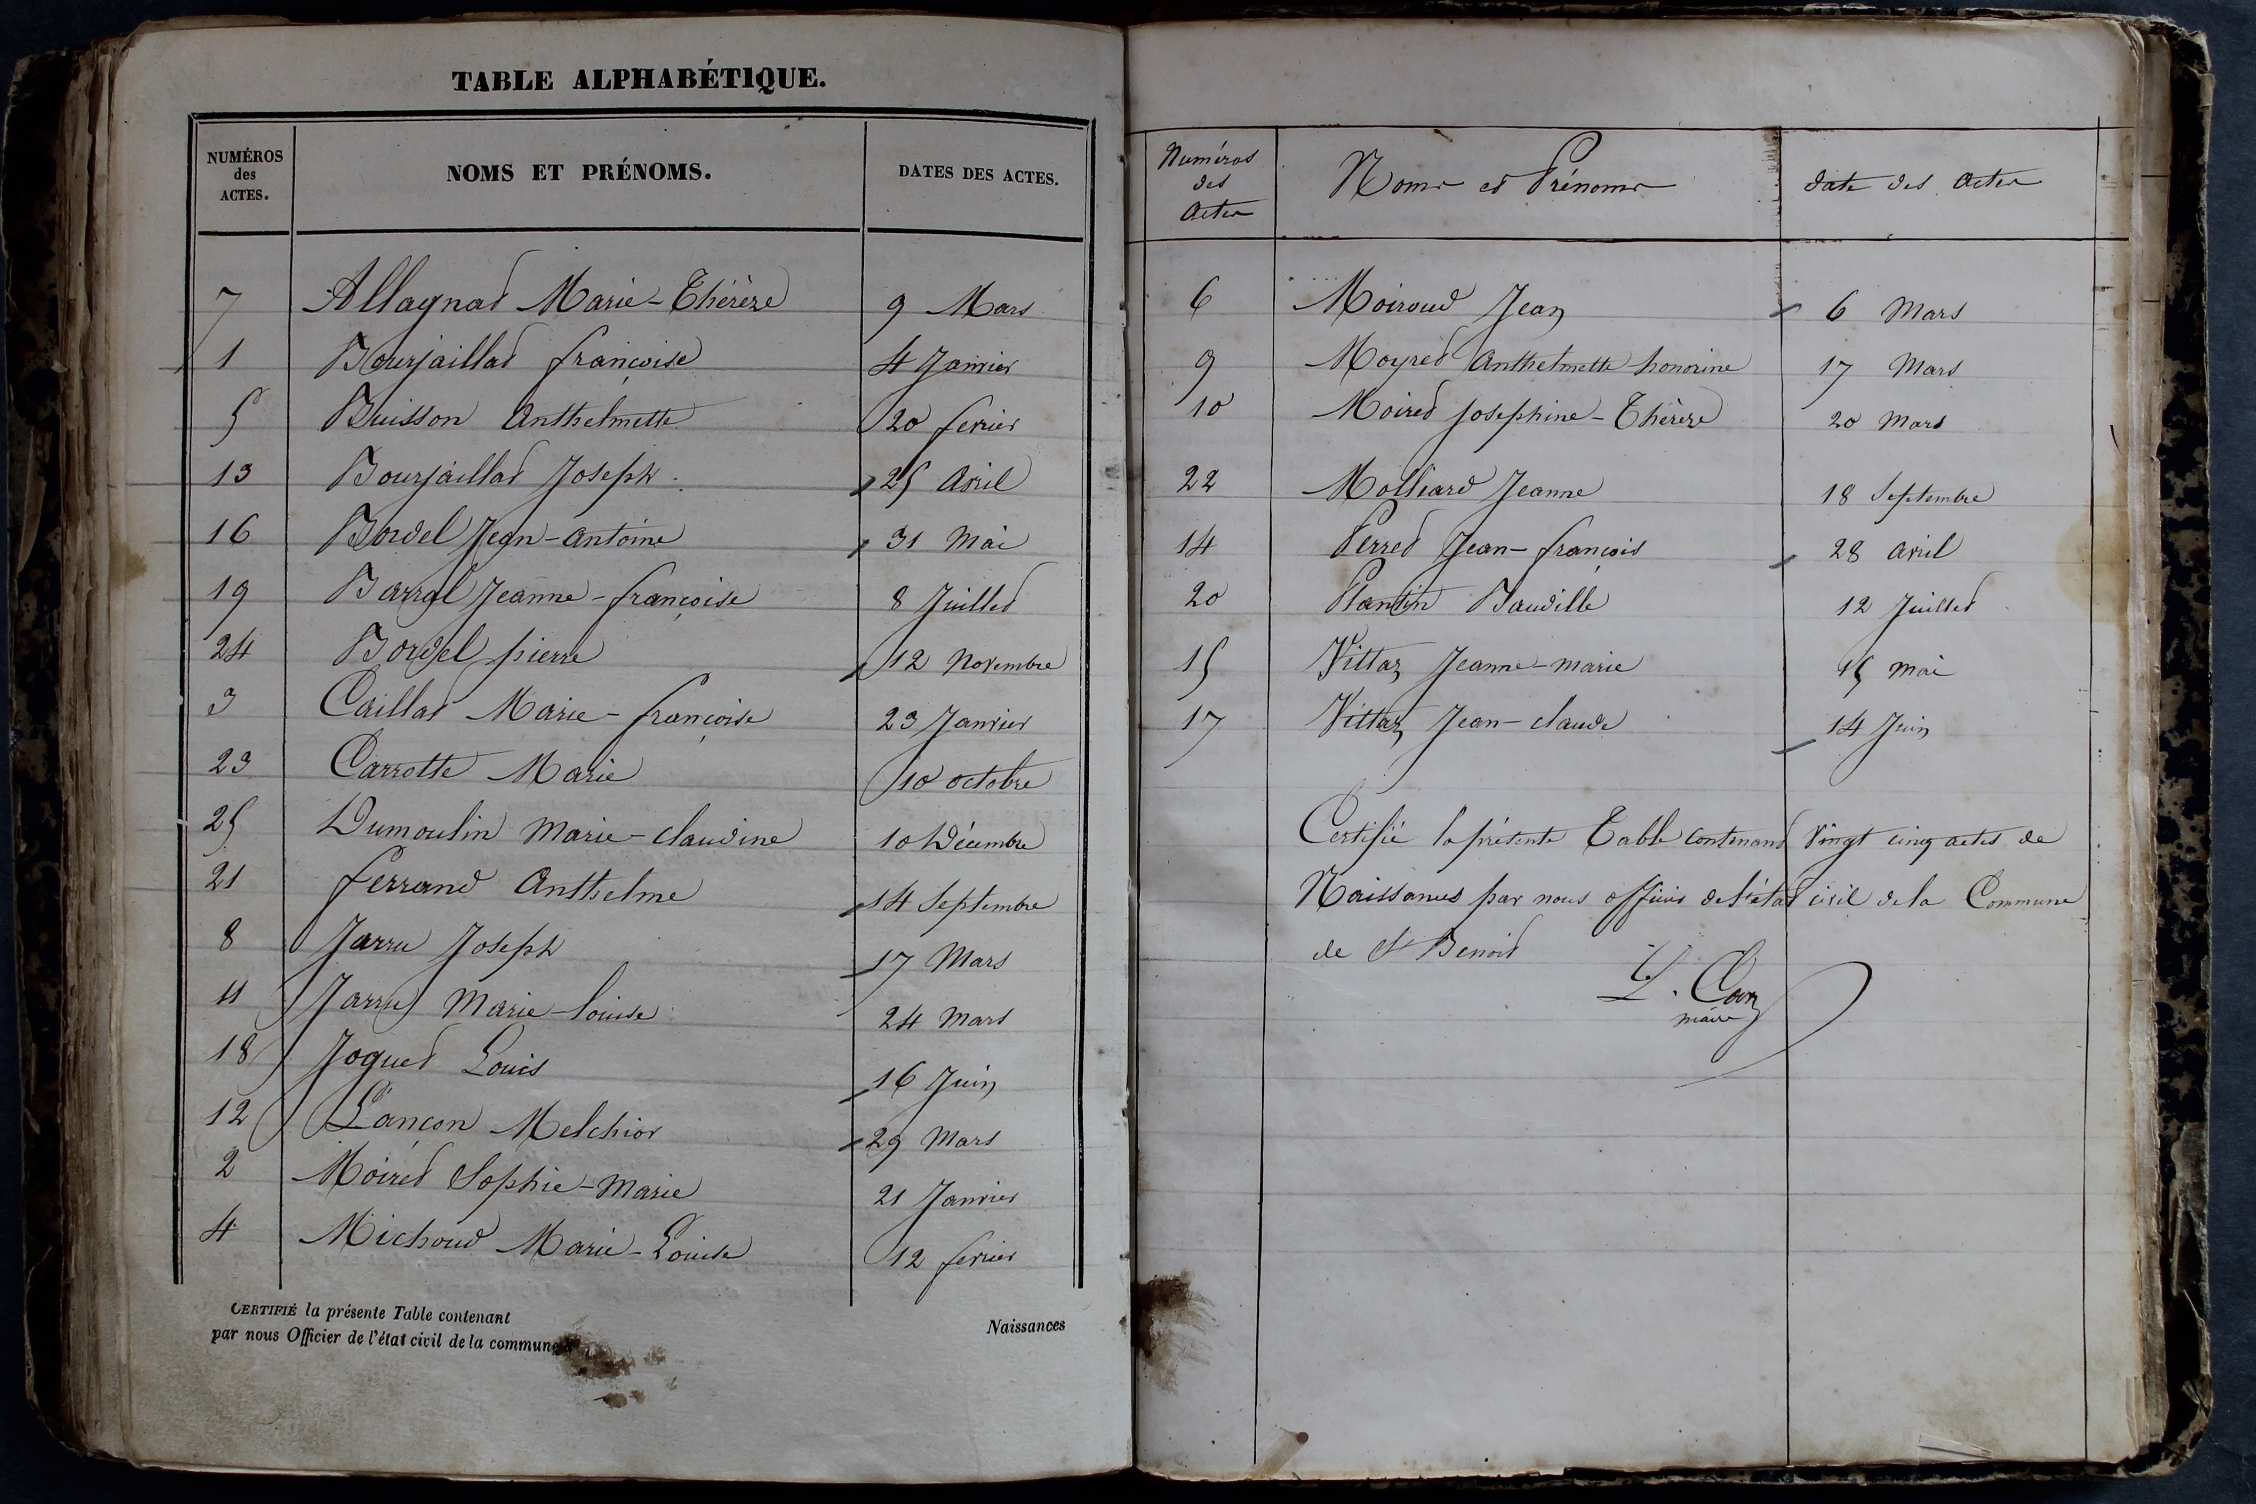 TABLE ALPHABÉTIQUE.
NUMÉROS des ACTES. NOMS ET PRÉNOMS. DATES DES ACTES.
7 Allagnat Marie-Thérèze 9 Mars
1 Bourjaillat françoise 4 Janvier
5 Buisson Anthelmette 20 fevrier
13 Bourjaillat Joseph 25 Avril
16 Bordel Jean-Antoine 31 Mai
19 Barral Jeanne-françoise 8 Juillet
24 Bordel pierre 12 Novembre
3 Caillat Marie-françoise 23 Janvier
23 Carrotte Marie 10 octobre
25 Dumoulin Marie-claudine 10 Décembre
21 ferrand Anthelme 14 Septembre
8 Jarru Joseph 17 Mars
11 Jarru Marie-louise 24 Mars
18 Joguet Louis 16 Juin
12 Lançon Melchior 29 Mars
2 Moiret Sophie-Marie 21 Janvier
4 Michoud Marie-Louise 12 fevrier
CERTIFIÉ la présente Table contenant Naissances
par nous Officier de l'état civil de la commune
Numéros des Actes Noms et Prénoms date des Actes
6 Moiroud Jean 6 Mars
9 Moyret Anthelmette honorine 17 Mars
10 Moiret Josephine-Thérèze 20 Mars
22 Molliard Jeanne 18 Septembre
14 Perret Jean-françois 28 Avril
20 Plantin Baudille 12 Juillet
15 Vittaz Jeanne-marie 15 mai
17 Vittaz Jean-claude 14 Juin
Certifié la présente Table contenant Vingt cinq actes de
Naissances par nous officier de l'état civil de la Commune
de St Benoit
maire